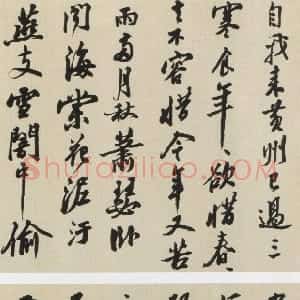 自我来黄州已過三
寒食年〻欲惜春〻
去不容惜今年又苦
雨兩月秋蕭瑟卧
聞海棠花泥汙
燕支雪闇中偷
Shufaziliao.COM